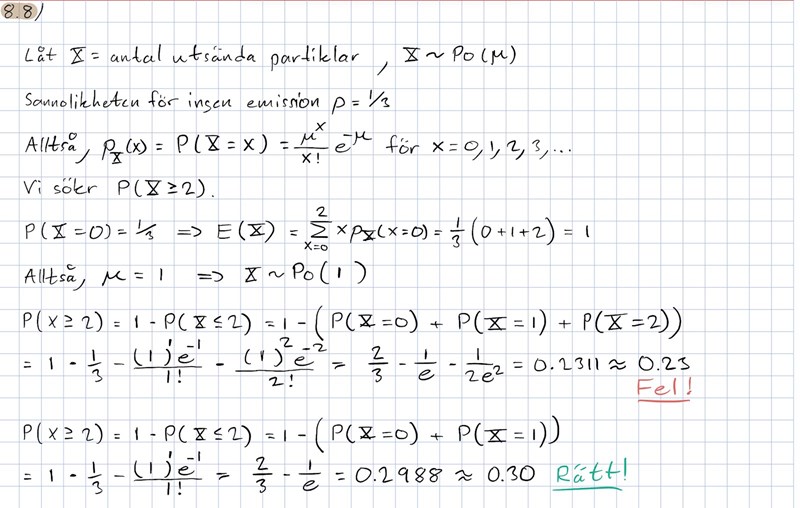 8.8)
Låt X = antal utsända partiklar, X ~ Po(μ)
Sannolikheten för ingen emission p = 1/3
Alltså, p_X(x) = P(X = x) = μ^x/x! e^-μ för x = 0, 1, 2, 3, ...
Vi sökr P(X ≥ 2).
P(X = 0) = 1/3 => E(X) = Σ_{x=0}^{2} x p_X(x=0) = 1/3 (0+1+2) = 1
Alltså, μ = 1 => X ~ Po(1)
P(x ≥ 2) = 1 - P(X ≤ 2) = 1 - (P(X = 0) + P(X = 1) + P(X = 2))
= 1 - 1/3 - (1)^1 e^-1/1! - (1)^2 e^-2/2! = 2/3 - 1/e - 1/2e^2 = 0.2311 ≈ 0.23
Fel!
P(x ≥ 2) = 1 - P(X ≤ 2) = 1 - (P(X = 0) + P(X = 1))
= 1 - 1/3 - (1)^1 e^-1/1! = 2/3 - 1/e = 0.2988 ≈ 0.30 Rätt!